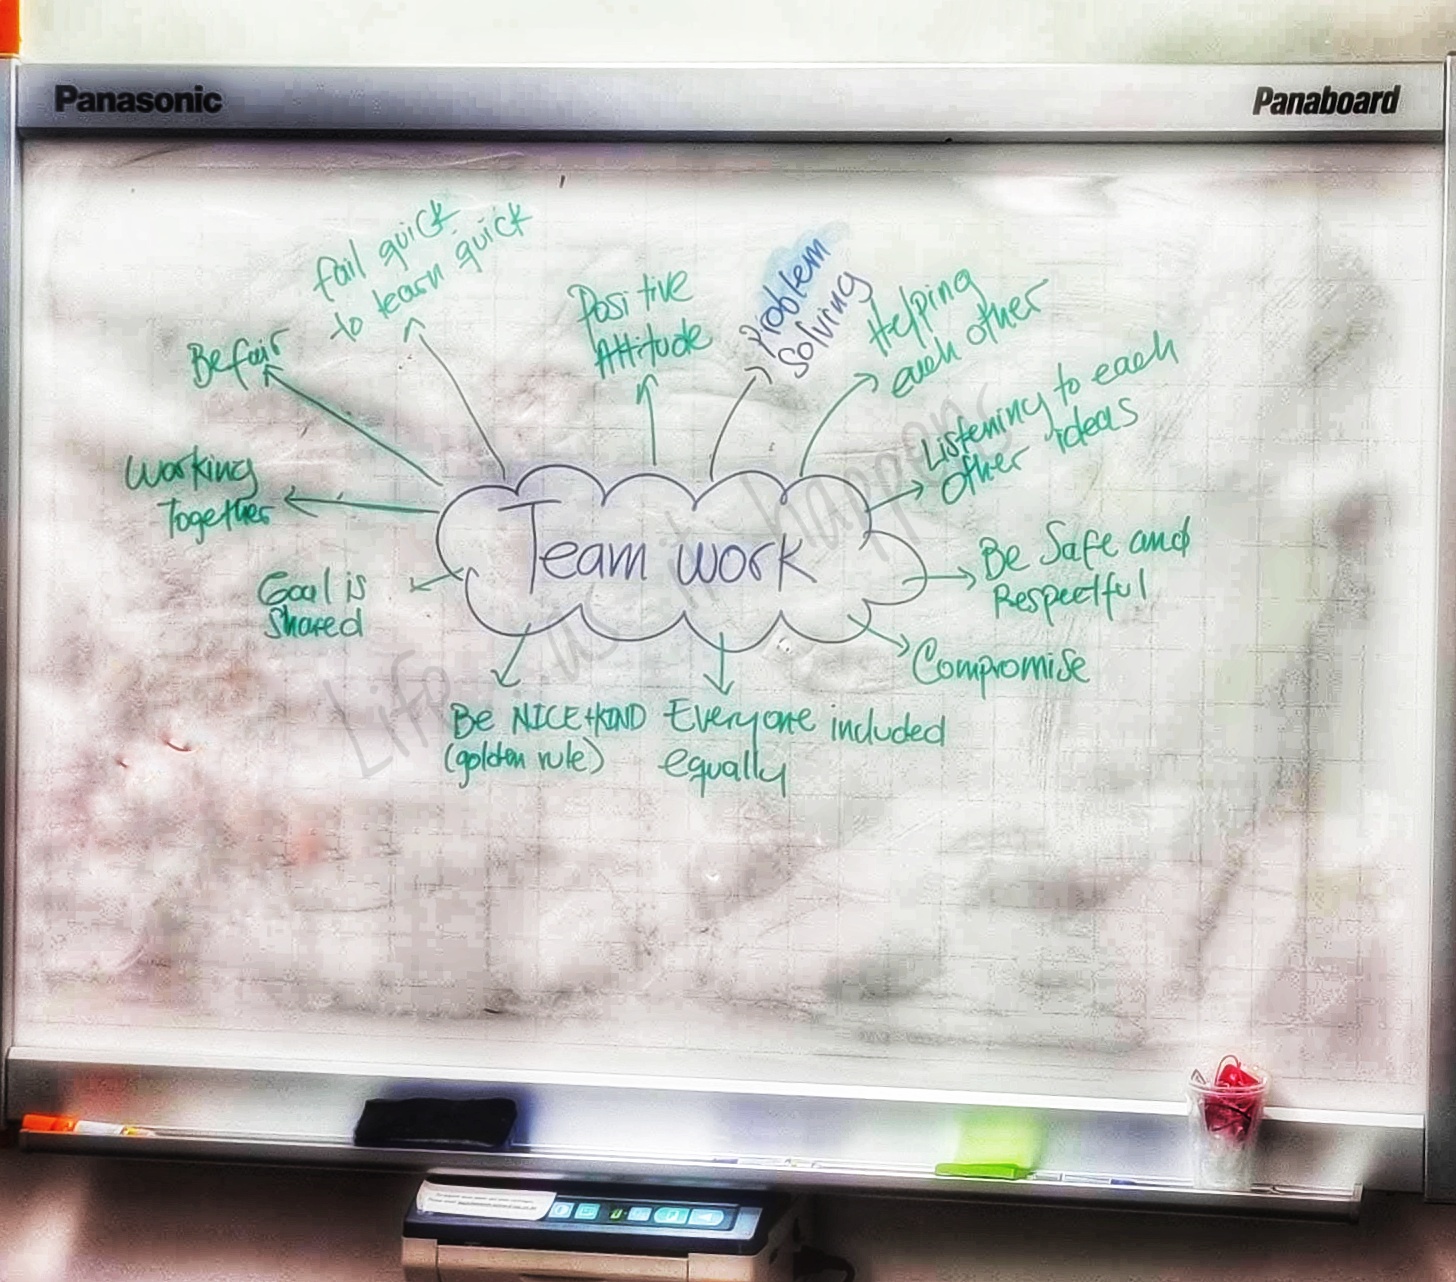 Panasonic
Panaboard
fail quick
to learn quick
Be fair
Positive
Attitude
Problem
Solving
Helping
each other
Listening to each
other ideas
Working
Together
Team work
Be Safe and
Respectful
Goal is
Shared
Compromise
Be NICE + KIND
(golden rule)
Everyone included
equally
Life as it happens